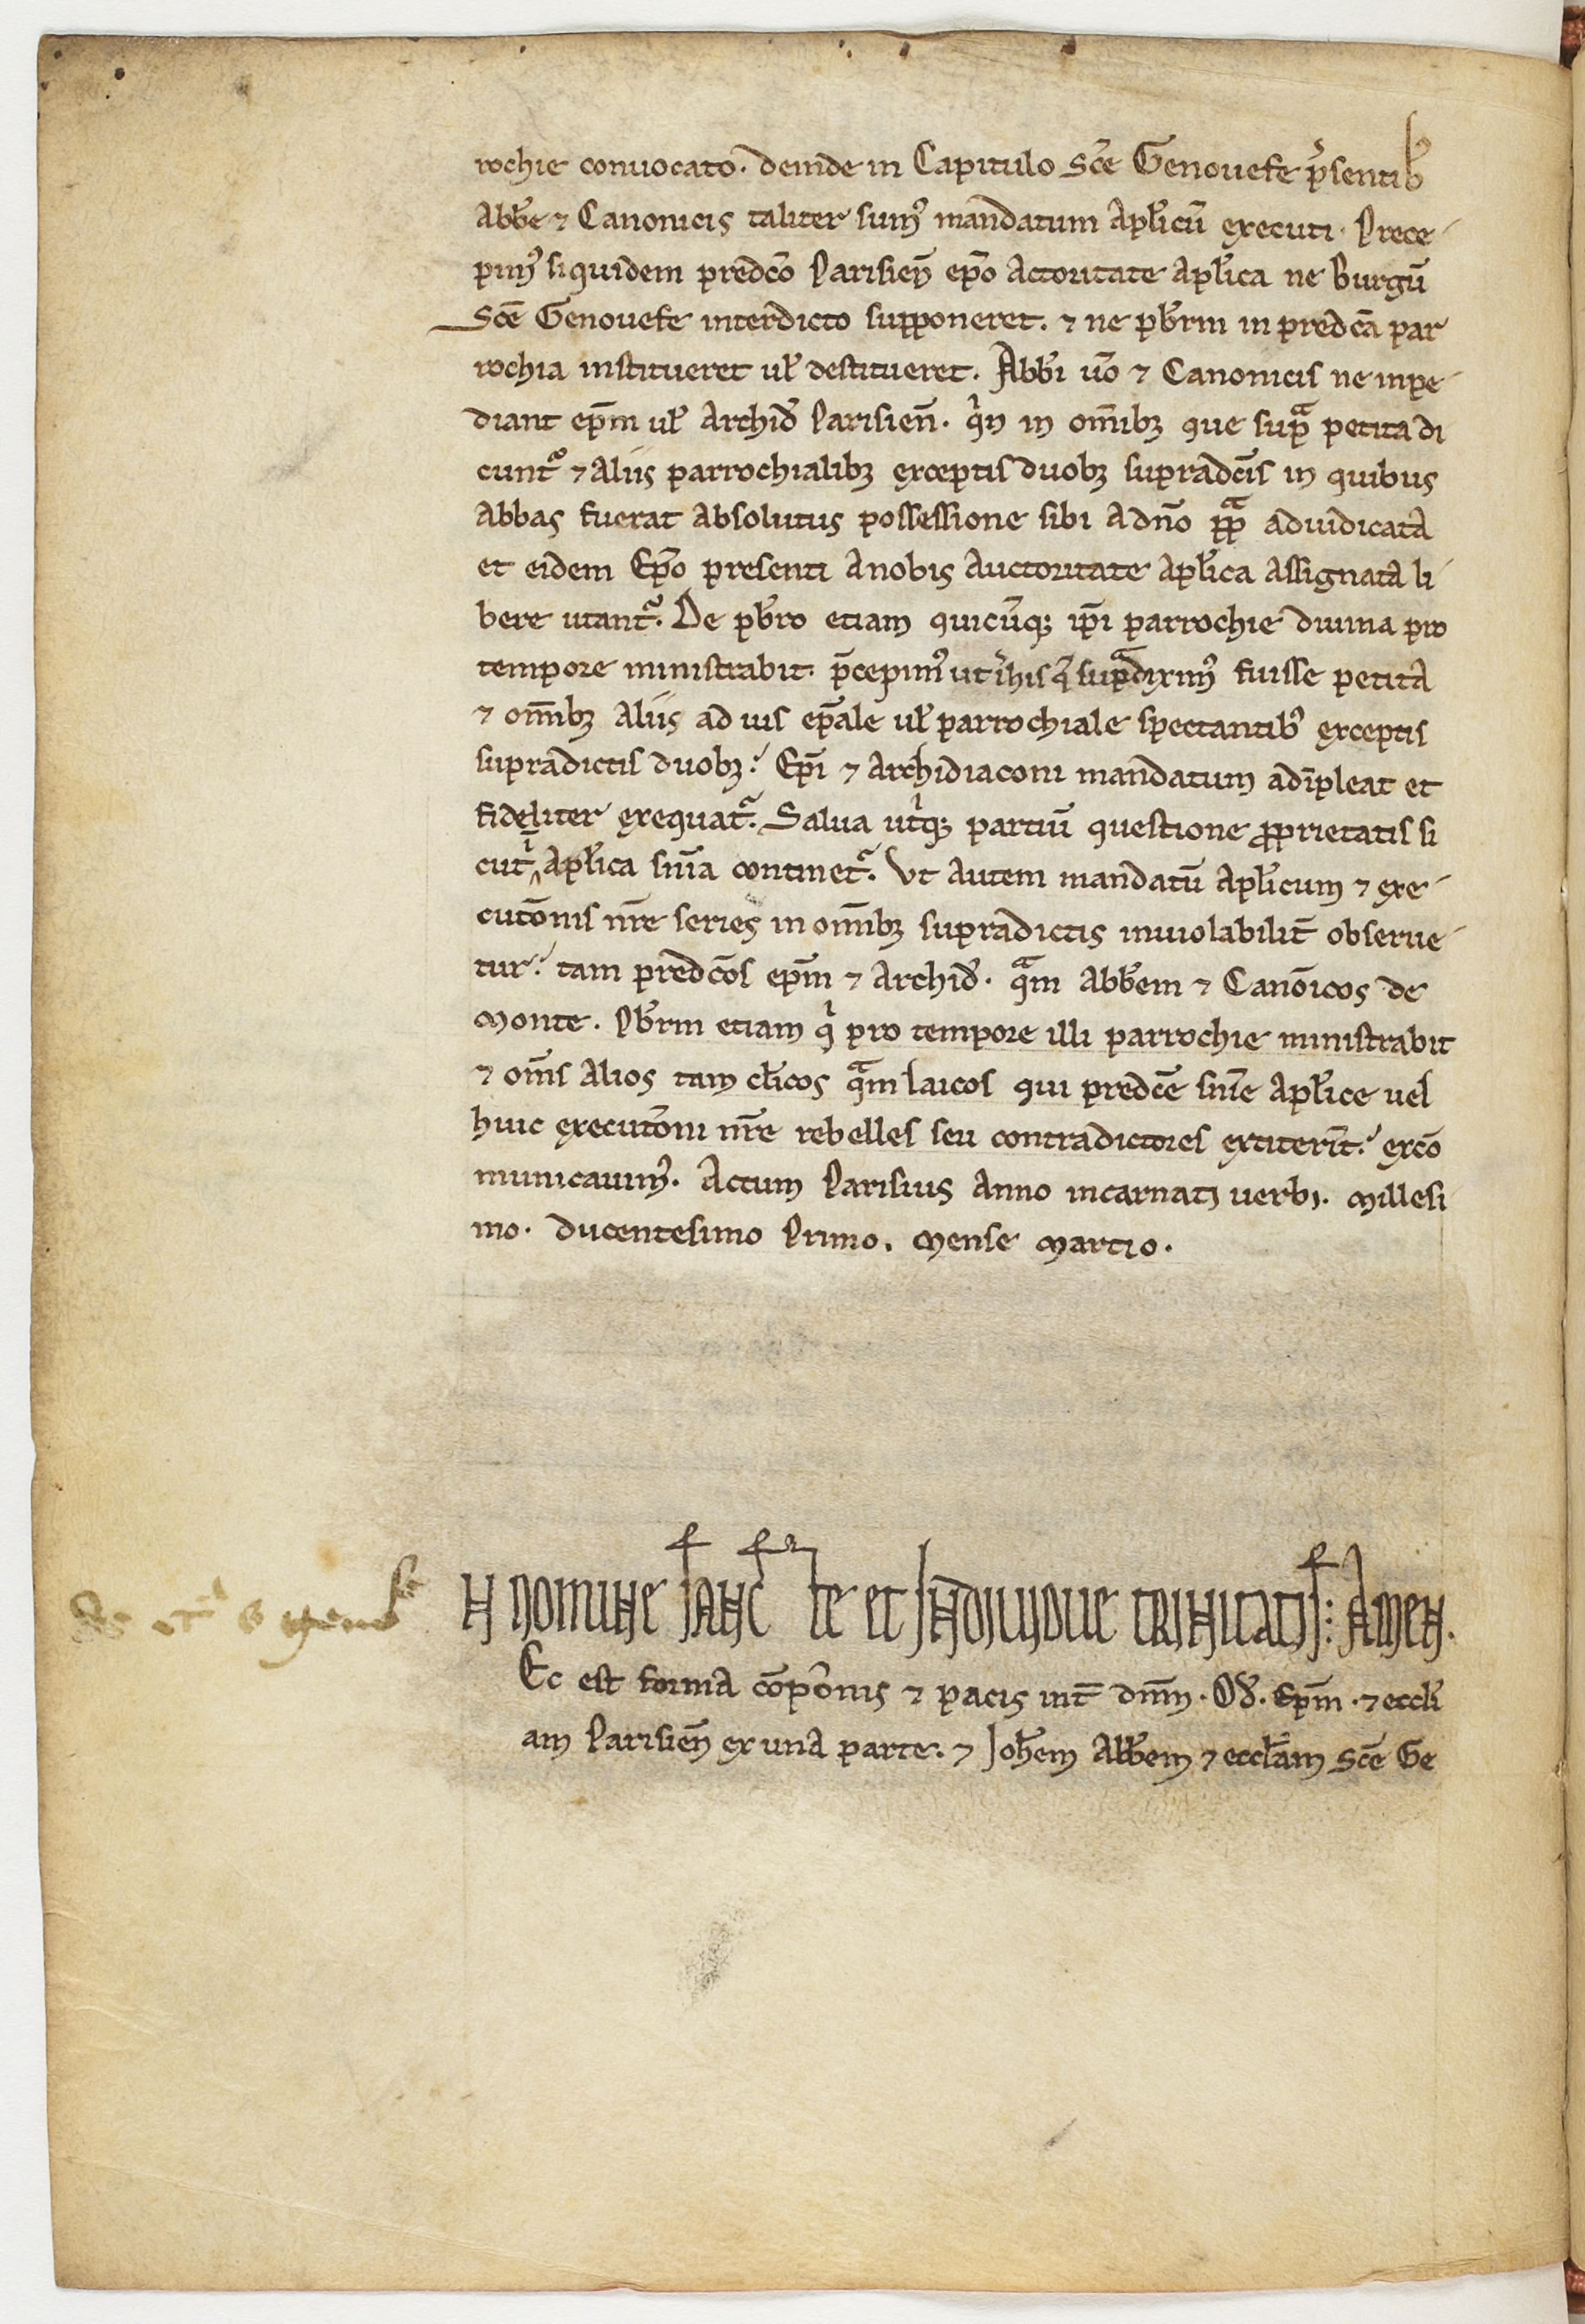 rochie conuocato. deinde in Capitulo Sc̄e Genouefe p̄sentib᷒
Abb̄e ⁊ Canonicis taliter sumꝰ mandatum Apl̄icū executi. Prece
pimꝰ siquidem predc̄o Parisien̄ ep̄o Actoritate Apl̄ica ne Burgū
Sc̄e Genouefe interdicto supponeret. ⁊ ne pb̄rm in predc̄a par
rochia institueret ul̄ destitueret. Abb̄i u̅o ⁊ Canonicis ne inpe
diant ep̄m ul̄ Archid̄ Parisien̄. qͥn in om̄ibꝫ que supᷓ petita di
cunt᷑ ⁊ Aliis parrochialibꝫ exceptis duobꝫ supradc̄is in quibus
Abbas fuerat Absolutus possessione sibi A dn̄o pᷓp̄ adiudicata
et eidem Ep̄o presenti A nobis Auctoritate Apl̄ica Assignata li
bere utant᷑. De pb̄ro etiam quicūqꝫ ip̄i parrochie diuina pro
tempore ministrabit. p̄cepimꝰ ut ī his q̄ supᷓdiximꝰ fuisse petita
⁊ om̄ibꝫ Aliis ad ius ep̄ale ul̄ parrochiale spectantibꝰ exceptis
supradictis duobꝫ. Ep̄i ⁊ Archidiaconi mandatum adīpleat et
fideliter exequat᷑. Salua utͥqꝫ partiū questione ꝓprietatis si
cut ī Apl̄ica sn̄ia continet᷑. Ut Autem mandatū Apl̄icum ⁊ exe
cutōnis nr̄e series in om̄ibꝫ supradictis inuiolabilit̄ obserue
tur. tam predc̄os ep̄m ⁊ Archid̄. qᷓm Abb̄em ⁊ Canōicos de
Monte. Pb̄rm etiam qͥ pro tempore illi parrochie ministrabit
⁊ om̄s Alios tam cl̄icos qᷓm laicos qui predc̄e sn̄ie Apl̄ice uel
huic executōni nr̄e rebelles seu contradictores extiterīt. excō
municauimꝰ. Actum Parisius Anno incarnati uerbi. Millesi
mo. ducentesimo Primo. Mense Martio.
N nomine sanc te et indiuidue trinitatis. Amen.
Ec est forma cōpōnis ⁊ pacis int̄ dn̄m. Od̄. Ep̄m. ⁊ eccl̄i
am Parisien̄ ex una parte. ⁊ Joh̄em Abb̄em ⁊ eccl̄iam Sc̄e Ge